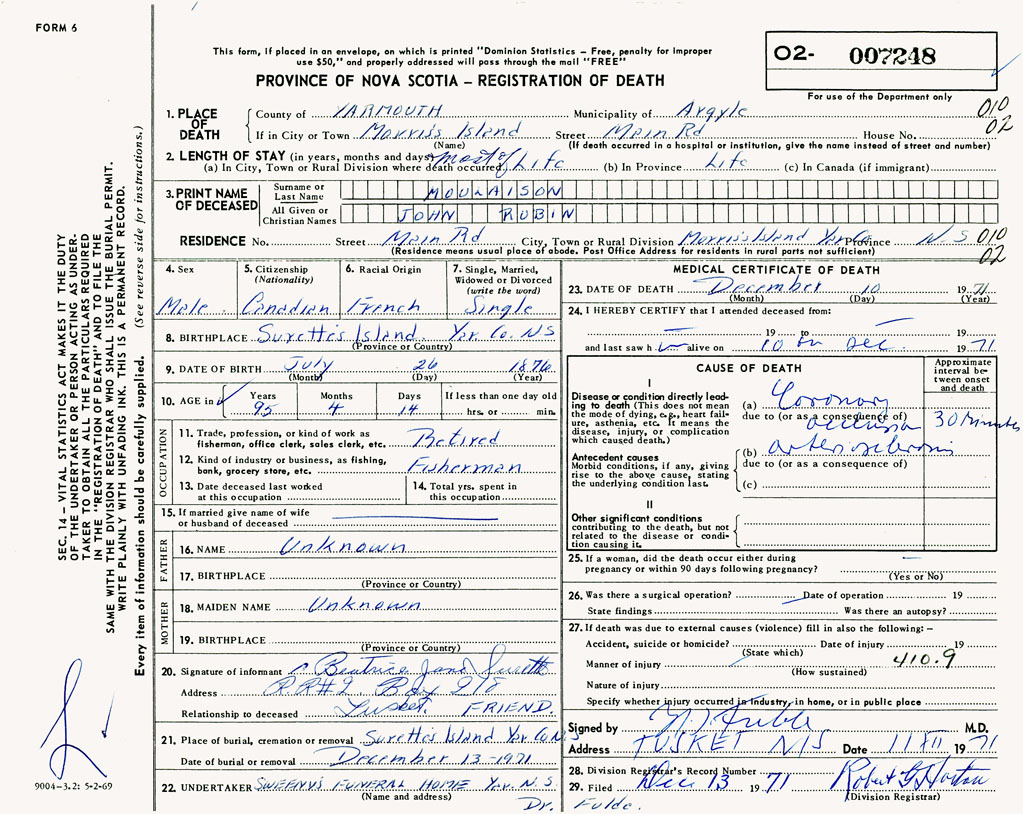 FORM 6
This form, if placed in an envelope, on which is printed "Dominion Statistics – Free, penalty for improper
use $50," and properly addressed will pass through the mail "FREE"
PROVINCE OF NOVA SCOTIA – REGISTRATION OF DEATH
O2- 007248
For use of the Department only
1. PLACE OF DEATH
County of YARMOUTH Municipality of Argyle 010
If in City or Town Morris's Island Street Main Rd House No. 02
(Name) (If death occurred in a hospital or institution, give the name instead of street and number)
2. LENGTH OF STAY (in years, months and days)
(a) In City, Town or Rural Division where death occurred most of Life (b) In Province Life (c) In Canada (if immigrant)
3. PRINT NAME OF DECEASED
Surname or Last Name MOULAISON
All Given or Christian Names JOHN RUBIN
RESIDENCE No. Street Main Rd City, Town or Rural Division Morris's Island Yar Co Province N.S 010
(Residence means usual place of abode. Post Office Address for residents in rural parts not sufficient) 02
4. Sex
Male
5. Citizenship (Nationality)
Canadian
6. Racial Origin
French
7. Single, Married, Widowed or Divorced (write the word)
Single
8. BIRTHPLACE Surette's Island. Yar. Co. NS
(Province or Country)
9. DATE OF BIRTH July 26 1876
(Month) (Day) (Year)
10. AGE in Years Months Days If less than one day old
95 4 14 hrs. or min.
OCCUPATION
11. Trade, profession, or kind of work as
fisherman, office clerk, sales clerk, etc. Retired
12. Kind of industry or business, as fishing,
bank, grocery store, etc. Fisherman
13. Date deceased last worked
at this occupation
14. Total yrs. spent in
this occupation
15. If married give name of wife
or husband of deceased
FATHER
16. NAME Unknown
17. BIRTHPLACE
(Province or Country)
MOTHER
18. MAIDEN NAME Unknown
19. BIRTHPLACE
(Province or Country)
20. Signature of informant Beatrice Jane Surette
Address RR#2 Box 278
Relationship to deceased Tusket FRIEND.
21. Place of burial, cremation or removal Surette's Island Yar Co NS
Date of burial or removal December 13-1971
22. UNDERTAKER SWEENY'S FUNERAL HOME Yar. N.S.
(Name and address)
Dr. Fulde.
MEDICAL CERTIFICATE OF DEATH
23. DATE OF DEATH December 10 1971
(Month) (Day) (Year)
24. I HEREBY CERTIFY that I attended deceased from:
19 to
and last saw h alive on 10 on Dec. 1971
CAUSE OF DEATH
Approximate interval between onset and death
I
Disease or condition directly leading to death (This does not mean the mode of dying, e.g., heart failure, asthenia, etc. It means the disease, injury, or complication which caused death.)
(a) Coronary
due to (or as a consequence of) occlusion 30 Minutes
Antecedent causes
Morbid conditions, if any, giving rise to the above cause, stating the underlying condition last.
(b) arteriosclerosis
due to (or as a consequence of)
(c)
II
Other significant conditions
contributing to the death, but not related to the disease or condition causing it.
25. If a woman, did the death occur either during
pregnancy or within 90 days following pregnancy?
(Yes or No)
26. Was there a surgical operation? Date of operation 19
State findings Was there an autopsy?
27. If death was due to external causes (violence) fill in also the following: –
Accident, suicide or homicide? Date of injury 19
(State which)
Manner of injury 410.9
(How sustained)
Nature of injury
Specify whether injury occurred in industry, in home, or in public place
Signed by M.D.
Address TUSKET N/S Date 11 XII 1971
28. Division Registrar's Record Number
29. Filed Dec 13 1971 Robert G Horton
(Division Registrar)
SEC. 14 – VITAL STATISTICS ACT MAKES IT THE DUTY
OF THE UNDERTAKER OR PERSON ACTING AS UNDER-
TAKER TO OBTAIN ALL THE PARTICULARS REQUIRED
IN THE "REGISTRATION OF DEATH" AND TO FILE THE
SAME WITH THE DIVISION REGISTRAR WHO SHALL ISSUE THE BURIAL PERMIT.
WRITE PLAINLY WITH UNFADING INK. THIS IS A PERMANENT RECORD.
Every item of information should be carefully supplied. (See reverse side for instructions.)
9004-3.2: 5-2-69